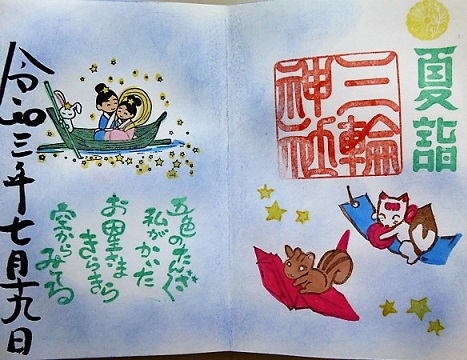 夏詣
三輪
神社
五色のたんざく
私がかいた
お星さま
きらきら
空から
みてる
令和三年七月十九日